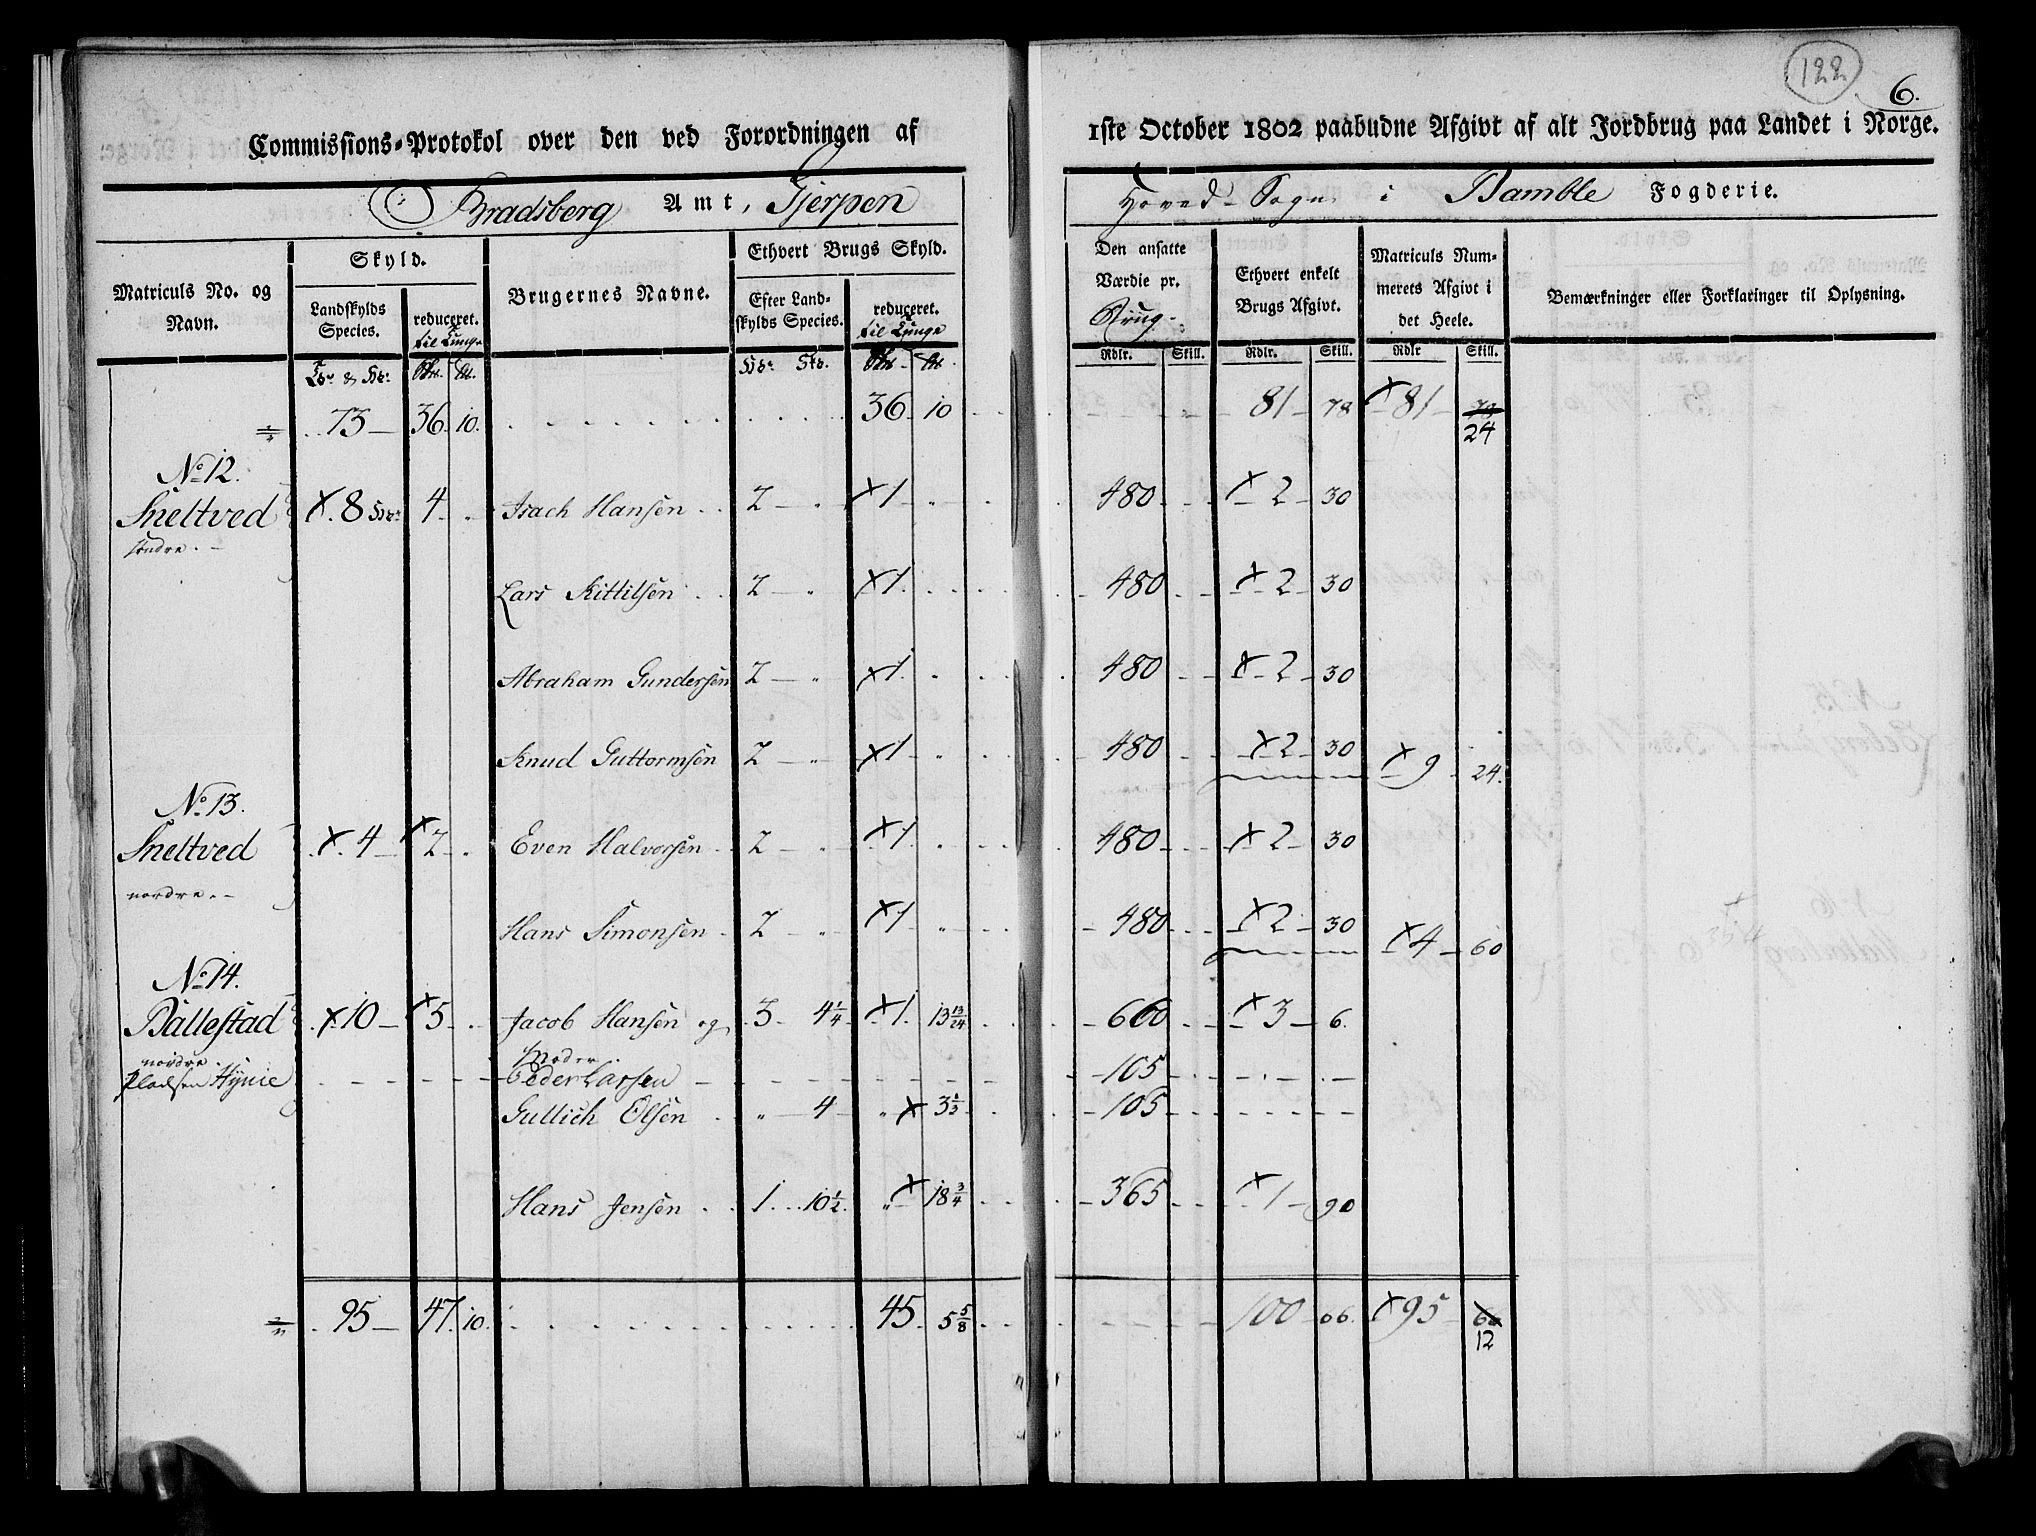 122
6.
Commissions-Protokol over den ved Forordningen af 1ste October 1802 paabudne Afgivt af alt Jordbrug paa Landet i Norge.
Bradsberg Amt, Gjerpen Hoved Sogn i Bamble Fogderie.
Matriculs No. og Navn.
Skyld.
Landskylds Species.
reduceret. til Tunge
Brugernes Navne.
Ethvert Brugs Skyld.
Efter Landskylds Species.
reduceret. til Tunge
Den ansatte Værdie pr. Brug.
Ethvert enkelt Brugs Afgivt.
Matriculs Nummerets Afgivt i det Heele.
Bemærkninger eller Forklaringer til Oplysning.
Rdlr. Skill. Rdlr. Skill. Rdlr Skill.
73 36 10 36 10 81 78 × 81 78
24
No 12.
Sneltved × 8 4 Isach Hansen 2 × 1 480 × 2 30
søndre.
Lars Kittilsen 2 × 1 480 × 2 30
Abraham Gundersen 2 × 1 480 × 2 30
Knud Guttormsen 2 × 1 480 × 2 30 × 9 24
No 13.
Sneltved × 4 × 2 Even Halvorsen 2 × 1 480 × 2 30
nordre.
Hans Simonsen 2 × 1 480 × 2 30 × 4 60
No 14.
Ballestad × 10 × 5 Jacob Hansen og 3 4 1/4 × 1 13 13/24 660 × 3 6
nordre. Moder.
Pladsen Hynie Peder Larsen 105
Gullich Olsen 4 × 3 1/3 105
Hans Jensen 1 10 1/2 × 18 3/4 365 × 1 90
95 47 10 45 5 5/8 100 66 × 95 60
12